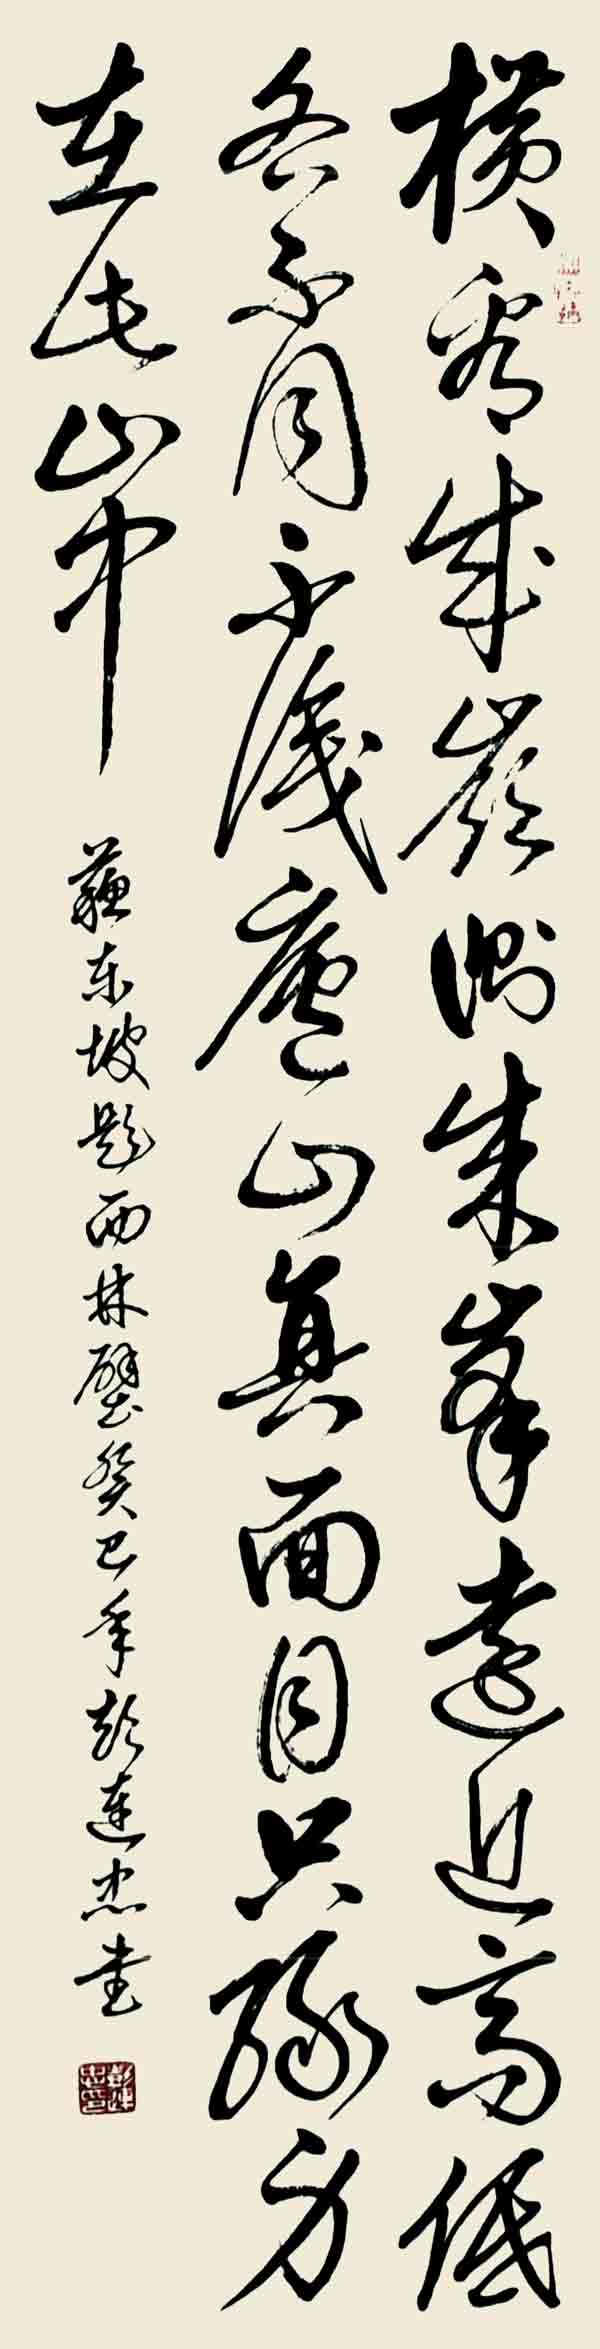 横看成岭侧成峯远近高低
各不同不識廬山真面目只缘身
在此山中
蘇东坡题西林壁癸巳年彭連忠书